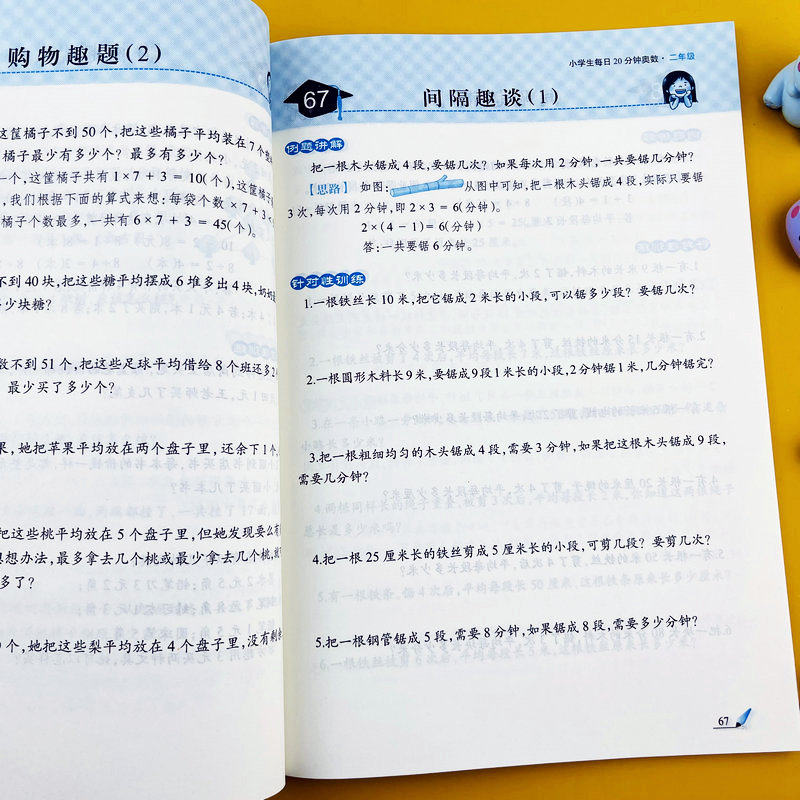 购物趣题(2)
这筐橘子不到50个,把这些橘子平均装在7个
橘子最少有多少个? 最多有多少个?
一个,这筐橘子共有1×7+3=10(个),这筐橘子
,我们根据下面的算式来想:每袋个数×7+3<
橘子个数最多,一共有6×7+3=45(个)。
不到40块,把这些糖平均摆成6堆多出4块,
少块糖?
数不到51个,把这些足球平均借给8个班还多2
最少买了多少个?
果,她把苹果平均放在两个盘子里,还余下1个
把这些桃平均放在5个盘子里,但她发现要么有
想办法,最多拿去几个桃或最少拿去几个桃,
多了?
个,她把这些梨平均放在4个盘子里,没有剩
小学生每日20分钟奥数·二年级
67
间隔趣谈(1)
例题讲解
把一根木头锯成4段,要锯几次? 如果每次用2分钟,一共要锯几分钟?
【思路】 如图: 从图中可知,把一根木头锯成4段,实际只要锯
3次,每次用2分钟,即2×3=6(分钟)。
2×(4-1)=6(分钟)
答:一共要锯6分钟。
针对性训练
1.一根铁丝长10米,把它锯成2米长的小段,可以锯多少段? 要锯几次?
2.一根圆形木料长9米,要锯成9段1米长的小段,2分钟锯1米,几分钟锯完?
3.把一根粗细均匀的木头锯成4段,需要3分钟,如果把这根木头锯成9段,
需要几分钟?
4.把一根25厘米长的铁丝剪成5厘米长的小段,可剪几段? 要剪几次?
5.把一根钢管锯成5段,需要8分钟,如果锯成8段,需要多少分钟?
67